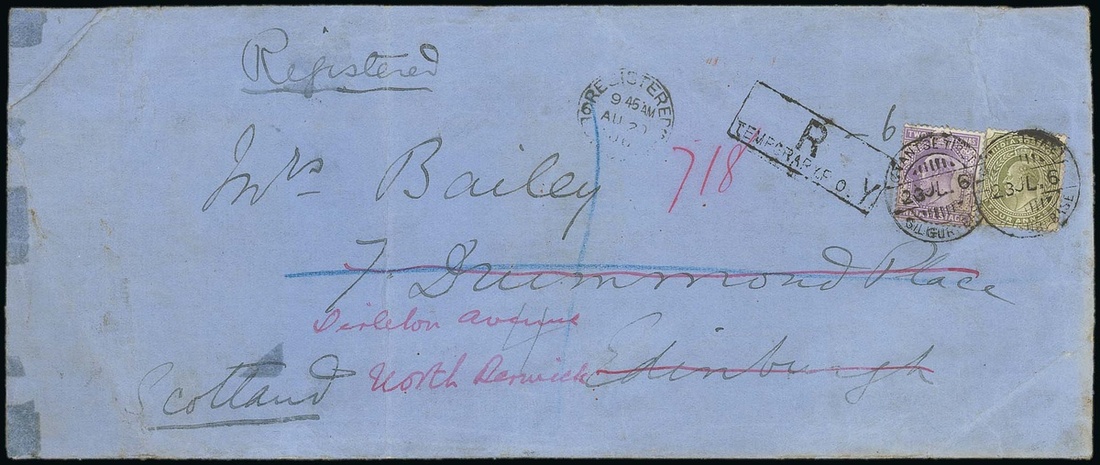 Registered
REGISTERED
9 45 AM
AU 20
R
TEMPORARY P.O.
6
718
23 JL. 6
23 JL. 6
Mrs Bailey
7 Drummond Place
Dirleton Avenue
North Berwick
Edinburgh
Scotland